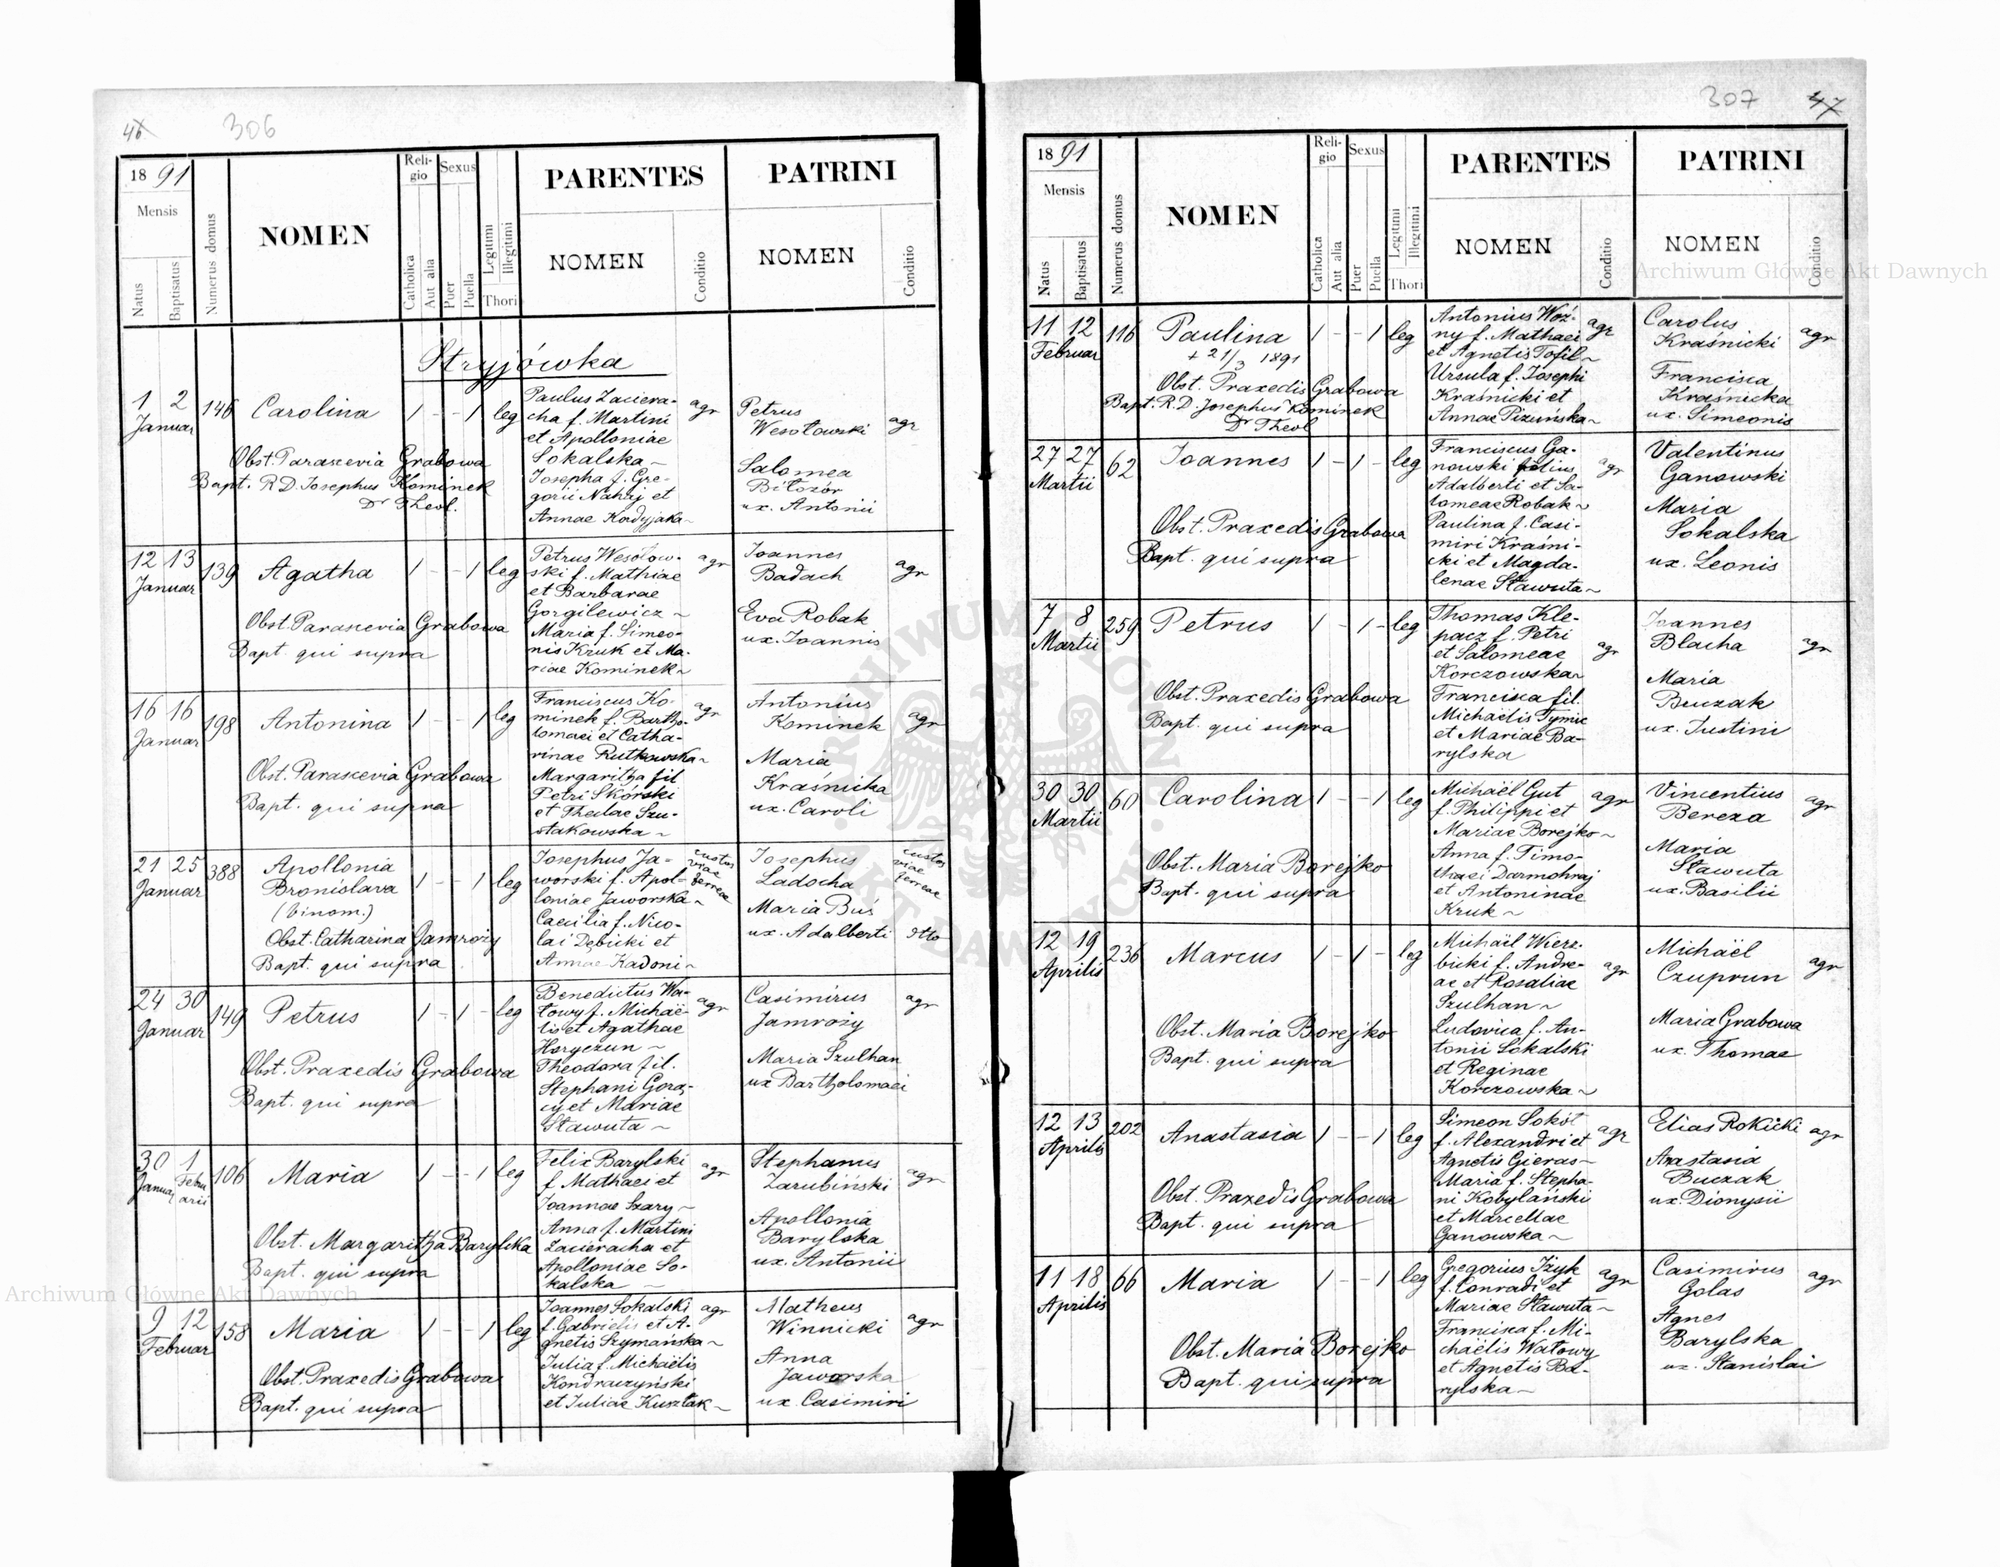 46
306
18 91
Mensis
Natus
Baptisatus
Numerus domus
NOMEN
Religio
Catholica
Aut alia
Sexus
Puer
Puella
Legitimi
Illegitimi
Thori
PARENTES
NOMEN
Conditio
PATRINI
NOMEN
Conditio
Stryjówka
1 2
Januar
146
Carolina
1 - - 1 leg
Obst. Parascevia Grabowa
Bapt. R.D. Josephus Kominek
Dr Theol.
Paulus Zaciera-
cha f. Martini
et Apolloniae
Sokalska ~
Josepha f. Gre-
gorii Nahaj et
Annae Kordyjaka ~
agr
Petrus
Wesołowski
agr
Salomea
Biłozór
ux. Antonii
12 13
Januar
139
Agatha
1 - - 1 leg
Obst. Parascevia Grabowa
Bapt. qui supra
Petrus Wesołow-
ski f. Mathiae
et Barbarae
Gorgilewicz ~
Maria f. Simeo-
nis Kruk et Ma-
riae Kominek ~
agr
Joannes
Badach
agr
Eva Robak
ux. Joannis
16 16
Januar
198
Antonina
1 - - 1 leg
Obst. Parascevia Grabowa
Bapt. qui supra
Franciscus Ko-
minek f. Bartho-
lomaei et Catha-
rinae Rutkowska ~
Margaritha fil
Petri Skórski
et Theclae Szu-
stakowska ~
agr
Antonius
Kominek
agr
Maria
Kraśnicka
ux. Caroli
21 25
Januar
388
Apollonia
Bronislava
(binom.)
1 - - 1 leg
Obst. Catharina Jamroży
Bapt. qui supra
Josephus Ja-
worski f. Apol-
loniae Jaworska ~
Caecilia f. Nico-
lai Dębicki et
Annae Kadoni ~
custos
viae
ferreae
Josephus
Ladocha
custos
viae
ferreae
Maria Buś
ux. Adalberti
dtto
24 30
Januar
149
Petrus
1 - 1 - leg
Obst. Praxedis Grabowa
Bapt. qui supra
Benedictus Wa-
towy f. Michaë-
lis et Agathae
Horyczun ~
Theodora fil.
Stephani Gora-
cy et Mariae
Stawuta ~
agr
Casimirus
Jamroży
agr
Maria Szulhan
ux Bartholomaei
30 1
Januar Febru
arii
106
Maria
1 - - 1 leg
Obst. Margaritha Barylska
Bapt. qui supra
Felix Barylski
f. Mathaei et
Joannae Szary ~
Anna f. Martini
Zacieracha et
Apolloniae So-
kalska ~
agr
Stephanus
Zarubiński
agr
Apollonia
Barylska
ux. Antonii
9 12
Februar
158
Maria
1 - - 1 leg
Obst. Praxedis Grabowa
Bapt. qui supra
Joannes Sokalski
f. Gabrielis et A-
gnetis Szymańska ~
Julia f. Michaëlis
Kondraczyński
et Juliae Kusztak ~
agr
Matheus
Winnicki
agr
Anna
Jaworska
ux. Casimiri
307
47
18 91
Mensis
Natus
Baptisatus
Numerus domus
NOMEN
Religio
Catholica
Aut alia
Sexus
Puer
Puella
Legitimi
Illegitimi
Thori
PARENTES
NOMEN
Conditio
PATRINI
NOMEN
Conditio
11 12
Februar
116
Paulina
+ 21/3 1891
1 - - 1 leg
Obst. Praxedis Grabowa
Bapt. R.D. Josephus Kominek
Dr Theol
Antonius Woź-
ny f. Mathaei
et Agnetis Tofil ~
Ursula f. Josephi
Kraśnicki et
Annae Pizuńska ~
agr
Carolus
Kraśnicki
agr
Francisca
Kraśnicka
ux. Simeonis
27 27
Martii
62
Joannes
1 - 1 - leg
Obst. Praxedis Grabowa
Bapt. qui supra
Franciscus Ga-
nowski filius
Adalberti et Sa-
lomeae Robak ~
Paulina f. Casi-
miri Kraśni-
cki et Magda-
lenae Stawuta ~
agr
Valentinus
Ganowski
Maria
Sokalska
ux. Leonis
7 8
Martii
259
Petrus
1 - 1 - leg
Obst. Praxedis Grabowa
Bapt. qui supra
Thomas Kle-
pacz f. Petri
et Salomeae
Korczowska ~
Francisca fil.
Michaëlis Tymic
et Mariae Ba-
rylska
agr
Joannes
Blacha
agr
Maria
Buczak
ux. Justini
30 30
Martii
60
Carolina
1 - - 1 leg
Obst. Maria Borejko
Bapt. qui supra
Michaël Gut
f. Philippi et
Mariae Borejko ~
Anna f. Timo-
thaei Darmohraj
et Antoninae
Kruk ~
agr
Vincentius
Bereza
agr
Maria
Stawuta
ux. Basilii
12 19
Aprilis
236
Marcus
1 - 1 - leg
Obst. Maria Borejko
Bapt. qui supra
Michaël Wierz-
bicki f. Andre-
ae et Rosaliae
Szulhan ~
Ludovica f. An-
tonii Sokalski
et Reginae
Korczowska ~
agr
Michaël
Czuprun
agr
Maria Grabowa
ux. Thomae
12 13
Aprilis
202
Anastasia
1 - - 1 leg
Obst. Praxedis Grabowa
Bapt. qui supra
Simeon Sokół
f. Alexandri et
Agnetis Gieras ~
Maria f. Stepha-
ni Kobylański
et Marcellae
Ganowska ~
agr
Elias Rokicki
agr
Anastasia
Buczak
ux. Dionysii
11 18
Aprilis
66
Maria
1 - - 1 leg
Obst. Maria Borejko
Bapt. qui supra
Gregorius Iżyk
f. Conradi et
Mariae Stawuta ~
Francisca f. Mi-
chaëlis Watowy
et Agnetis Ba-
rylska ~
agr
Casimirus
Golas
agr
Agnes
Barylska
ux. Stanislai
Archiwum Główne Akt Dawnych
Archiwum Główne Akt Dawnych
ARCHIWUM GŁÓWNE AKT DAWNYCH